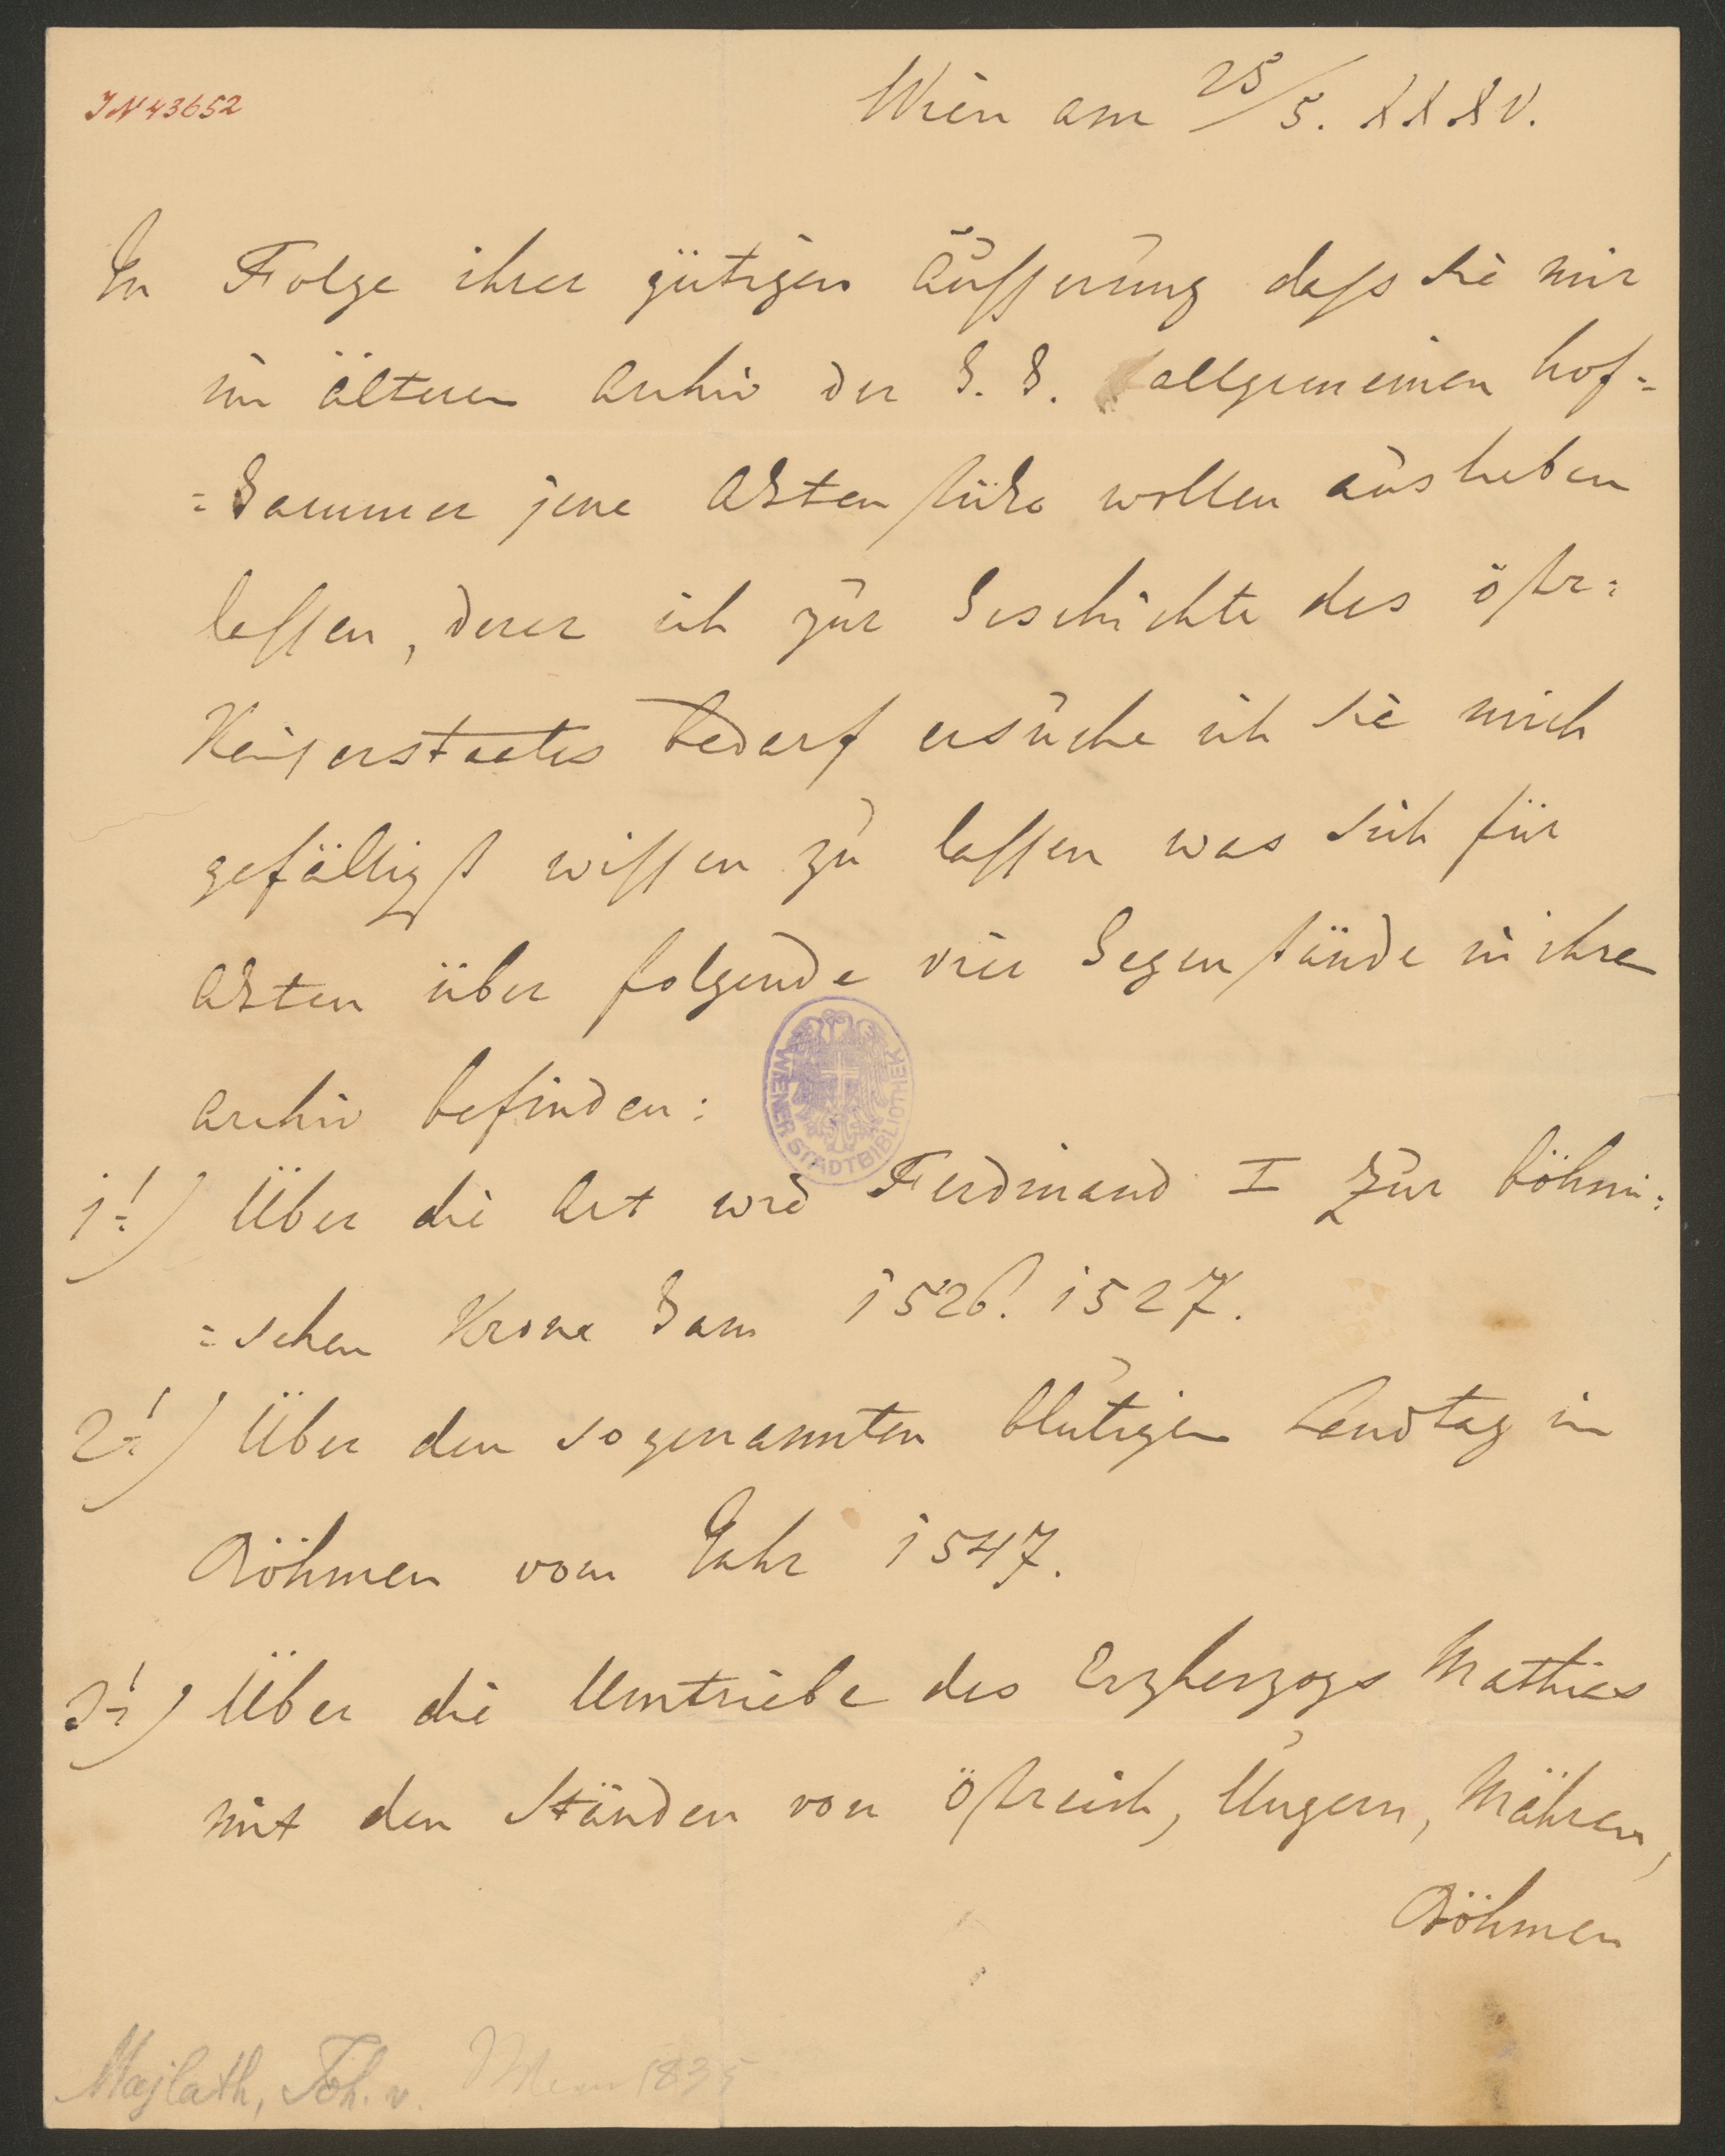 IN 43652
Wien am 25/5. XXXV.
In Folge ihrer gütigen Äusserung dass sie mir
im älteren Archiv der k. k. allgemeinen Hof=
=kammer jene Aktenstüke wollen ausheben
lassen, derer ich zur Geschichte des östr=
Kaiserstaates bedarf ersuche ich sie mich
gefälligst wissen zu lassen was sich für
Akten über folgende vier Gegenstände in ihre
Archiv befinden:
WIENER STADTBIBLIOTHEK
1.) Über die Art wie Ferdinand I zur böhmi=
=schen Krone kam 1526. 1527.
2.) Über den sogenannten blutigen Landtag in
Böhmen vom Jahr 1547.
3.) Über die Umtriebe des Erzherzogs Mathias
mit den Ständen von Östreich, Ungern, Mähren,
Böhmen
Majlath, Joh. v. Wien 1835